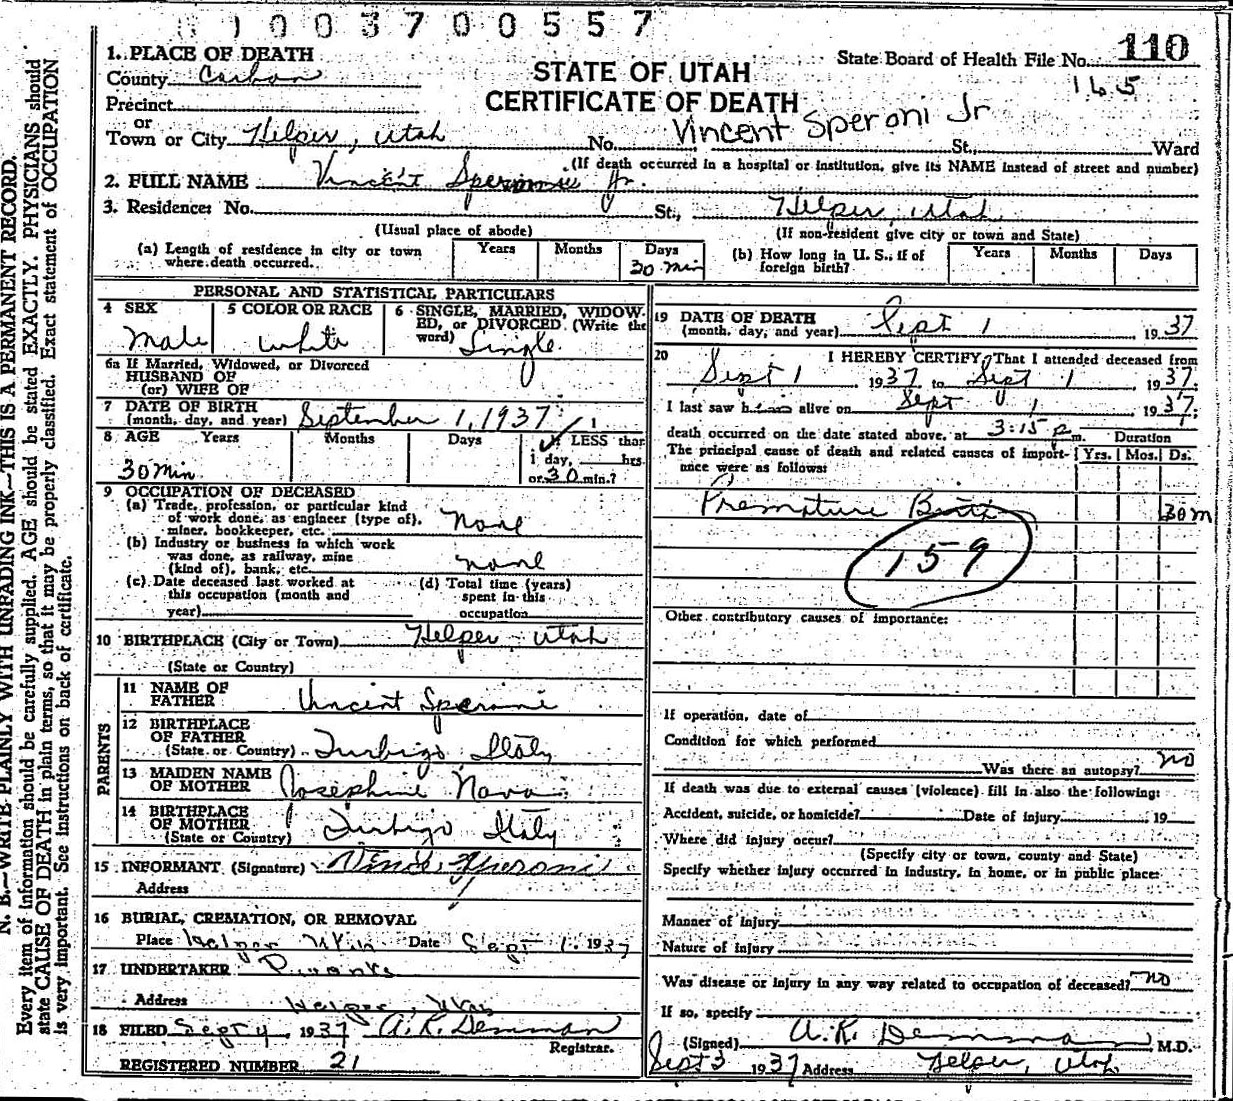 1003700557
1. PLACE OF DEATH
County Carbon
Precinct
or
Town or City Helper, Utah
STATE OF UTAH
CERTIFICATE OF DEATH
State Board of Health File No. 110
165
Vincent Speroni Jr
No. St., Ward
(If death occurred in a hospital or institution, give its NAME instead of street and number)
2. FULL NAME Vincent Speronie Jr.
3. Residence: No. St., Helper, Utah
(Usual place of abode) (If non-resident give city or town and State)
(a) Length of residence in city or town where death occurred. Years Months Days 30 Min
(b) How long in U. S., if of foreign birth? Years Months Days
PERSONAL AND STATISTICAL PARTICULARS
4 SEX Male
5 COLOR OR RACE white
6 SINGLE, MARRIED, WIDOWED, or DIVORCED (Write the word) Single
6a If Married, Widowed, or Divorced
HUSBAND OF
(or) WIFE OF
7 DATE OF BIRTH
(month, day, and year) September 1, 1937
8 AGE Years Months Days If LESS than
30 Min
1 day, hrs.
or 30 min.?
9 OCCUPATION OF DECEASED
(a) Trade, profession, or particular kind
of work done, as engineer (type of),
miner, bookkeeper, etc. none
(b) Industry or business in which work
was done, as railway, mine
(kind of), bank, etc. none
(c) Date deceased last worked at
this occupation (month and
year)
(d) Total time (years)
spent in this
occupation
10 BIRTHPLACE (City or Town) Helper, Utah
(State or Country)
PARENTS
11 NAME OF
FATHER Vincent Speroni
12 BIRTHPLACE
OF FATHER
(State or Country) Turbigo Italy
13 MAIDEN NAME
OF MOTHER Josephine Nava
14 BIRTHPLACE
OF MOTHER
(State or Country) Turbigo Italy
15 INFORMANT (Signature) Speroni
Address
16 BURIAL, CREMATION, OR REMOVAL
Place Helper Utah Date Sept 1, 1937
17 UNDERTAKER
Address Helper, Utah
18 FILED Sept 4, 1937 A. R. Demman
Registrar.
REGISTERED NUMBER 21
19 DATE OF DEATH
(month, day, and year) Sept 1 1937
20 I HEREBY CERTIFY, That I attended deceased from
Sept 1 1937 to Sept 1, 1937;
I last saw him alive on Sept 1, 1937;
death occurred on the date stated above, at 3:15 p m. Duration
The principal cause of death and related causes of importance were as follows: Yrs. Mos. Ds.
Premature Birth 30m
159
Other contributory causes of importance:
If operation, date of
Condition for which performed
Was there an autopsy? no
If death was due to external causes (violence) fill in also the following:
Accident, suicide, or homicide? Date of injury 19
Where did injury occur?
(Specify city or town, county and State)
Specify whether injury occurred in industry, in home, or in public place:
Manner of injury
Nature of injury
Was disease or injury in any way related to occupation of deceased? no
If so, specify
(Signed) A. R. Demman M.D.
Sept 3 1937 Address Helper, Utah
N. B.—WRITE PLAINLY WITH UNFADING INK—THIS IS A PERMANENT RECORD.
Every item of information should be carefully supplied. AGE should be stated EXACTLY. PHYSICIANS should
state CAUSE OF DEATH in plain terms, so that it may be properly classified. Exact statement of OCCUPATION
is very important. See instructions on back of certificate.